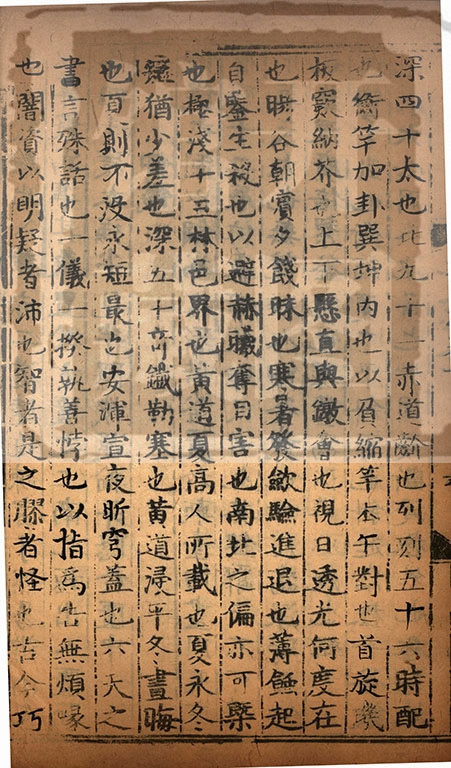 深四十太也北九十一赤道齘也列刻五十六時配
也衡竿加卦巽坤內也以負縮竿本午對也首旋璣
板窾納芥也上下懸直與鐓會也視日透光何度在
也暘谷朝賓夕餞昧也寒暑發斂驗進退也薄蝕起
自鑒生殺也以避赫曦奪目害也南北之偏亦可槩
也極淺十三林邑界也黃道夏高人所載也夏永冬
猶少差也深五十奇鐵勒塞也黃道浸平冬晝晦
也夏則不沒永短最也安渾宣夜昕穹蓋也六天之
書言殊話也一儀一揆孰善悖也以指爲告無煩喙
也闇資以明疑者沛也智者是之膠者怪也古今巧